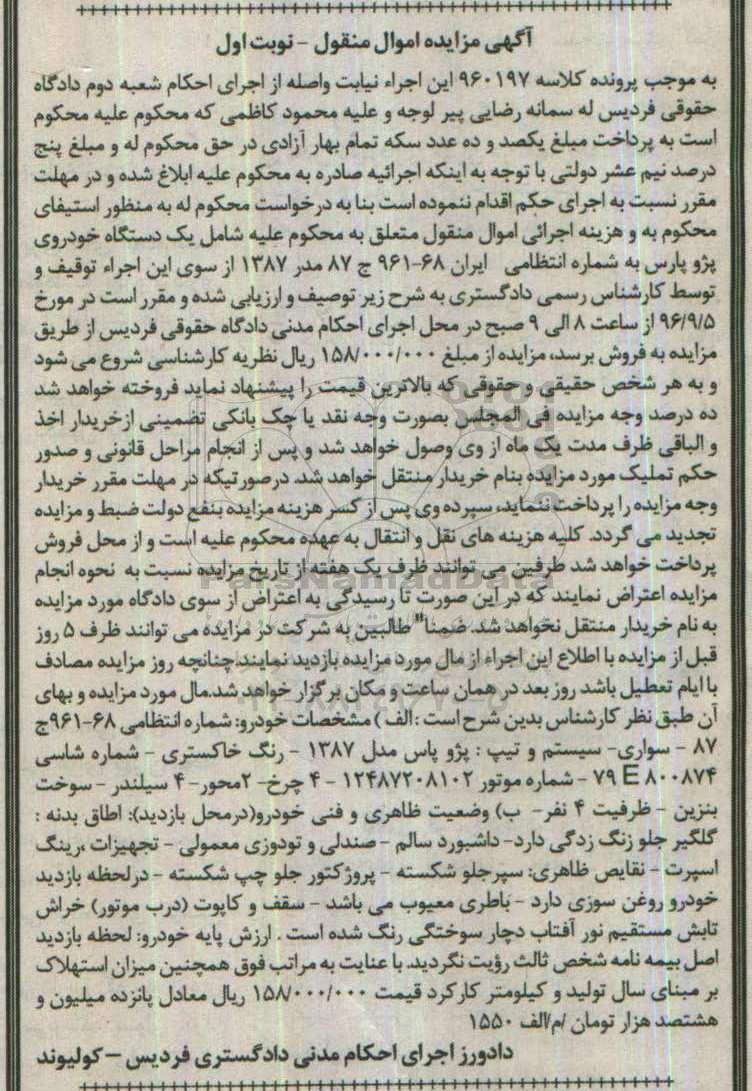 آگهی مزایده اموال منقول - نوبت اول
به موجب پرونده کلاسه ۹۶۰۱۹۷ این اجراء نیابت واصله از اجرای احکام شعبه دوم دادگاه
حقوقی فردیس له سمانه رضایی پیر لوجه و علیه محمود کاظمی که محکوم علیه محکوم
است به پرداخت مبلغ یکصد و ده عدد سکه تمام بهار آزادی در حق محکوم له و مبلغ پنج
درصد نیم عشر دولتی با توجه به اینکه اجرائیه صادره به محکوم علیه ابلاغ شده و در مهلت
مقرر نسبت به اجرای حکم اقدام ننموده است بنا به درخواست محکوم له به منظور استیفای
محکوم به و هزینه اجرائی اموال منقول متعلق به محکوم علیه شامل یک دستگاه خودروی
پژو پارس به شماره انتظامی ایران ۶۸-۹۶۱ ج ۸۷ مدر ۱۳۸۷ از سوی این اجراء توقیف و
توسط کارشناس رسمی دادگستری به شرح زیر توصیف و ارزیابی شده و مقرر است در مورخ
۹۶/۹/۵ از ساعت ۸ الی ۹ صبح در محل اجرای احکام مدنی دادگاه حقوقی فردیس از طریق
مزایده به فروش برسد، مزایده از مبلغ ۱۵۸/۰۰۰/۰۰۰ ریال نظریه کارشناسی شروع می شود
و به هر شخص حقیقی و حقوقی که بالاترین قیمت را پیشنهاد نماید فروخته خواهد شد
ده درصد وجه مزایده فی المجلس بصورت وجه نقد یا چک بانکی تضمینی ازخریدار اخذ
و الباقی ظرف مدت یک ماه از وی وصول خواهد شد و پس از انجام مراحل قانونی و صدور
حکم تملیک مورد مزایده بنام خریدار منتقل خواهد شد. درصورتیکه در مهلت مقرر خریدار
وجه مزایده را پرداخت ننماید، سپرده وی پس از کسر هزینه مزایده بنفع دولت ضبط و مزایده
تجدید می گردد. کلیه هزینه های نقل و انتقال به عهده محکوم علیه است و از محل فروش
پرداخت خواهد شد طرفین می توانند ظرف یک هفته از تاریخ مزایده نسبت به نحوه انجام
مزایده اعتراض نمایند که در این صورت تا رسیدگی به اعتراض از سوی دادگاه مورد مزایده
به نام خریدار منتقل نخواهد شد. ضمنا" طالبین به شرکت در مزایده می توانند ظرف ۵ روز
قبل از مزایده با اطلاع این اجراء از مال مورد مزایده بازدید نمایند.چنانچه روز مزایده مصادف
با ایام تعطیل باشد روز بعد در همان ساعت و مکان برگزار خواهد شد.مال مورد مزایده و بهای
آن طبق نظر کارشناس بدین شرح است :الف ) مشخصات خودرو: شماره انتظامی ۶۸-۹۶۱ج
۸۷ - سواری- سیستم و تیپ : پژو پاس مدل ۱۳۸۷ - رنگ خاکستری - شماره شاسی
۷۹ E ۸۰۰۸۷۴ - شماره موتور ۱۲۴۸۷۲۰۸۱۰۲ - ۴ چرخ- ۲محور- ۴ سیلندر - سوخت
بنزین - ظرفیت ۴ نفر- ب) وضعیت ظاهری و فنی خودرو(درمحل بازدید): اطاق بدنه :
گلگیر جلو زنگ زدگی دارد- داشبورد سالم - صندلی و تودوزی معمولی - تجهیزات ،رینگ
اسپرت - نقایص ظاهری: سپرجلو شکسته - پروژکتور جلو چپ شکسته - درلحظه بازدید
خودرو روغن سوزی دارد - باطری معیوب می باشد - سقف و کاپوت (درب موتور) خراش
تابش مستقیم نور آفتاب دچار سوختگی رنگ شده است . ارزش پایه خودرو: لحظه بازدید
اصل بیمه نامه شخص ثالث رؤیت نگردید. با عنایت به مراتب فوق همچنین میزان استهلاک
بر مبنای سال تولید و کیلومتر کارکرد قیمت ۱۵۸/۰۰۰/۰۰۰ ریال معادل پانزده میلیون و
هشتصد هزار تومان /م/الف ۱۵۵۰
دادورز اجرای احکام مدنی دادگستری فردیس – کولیوند
ParsNamadData